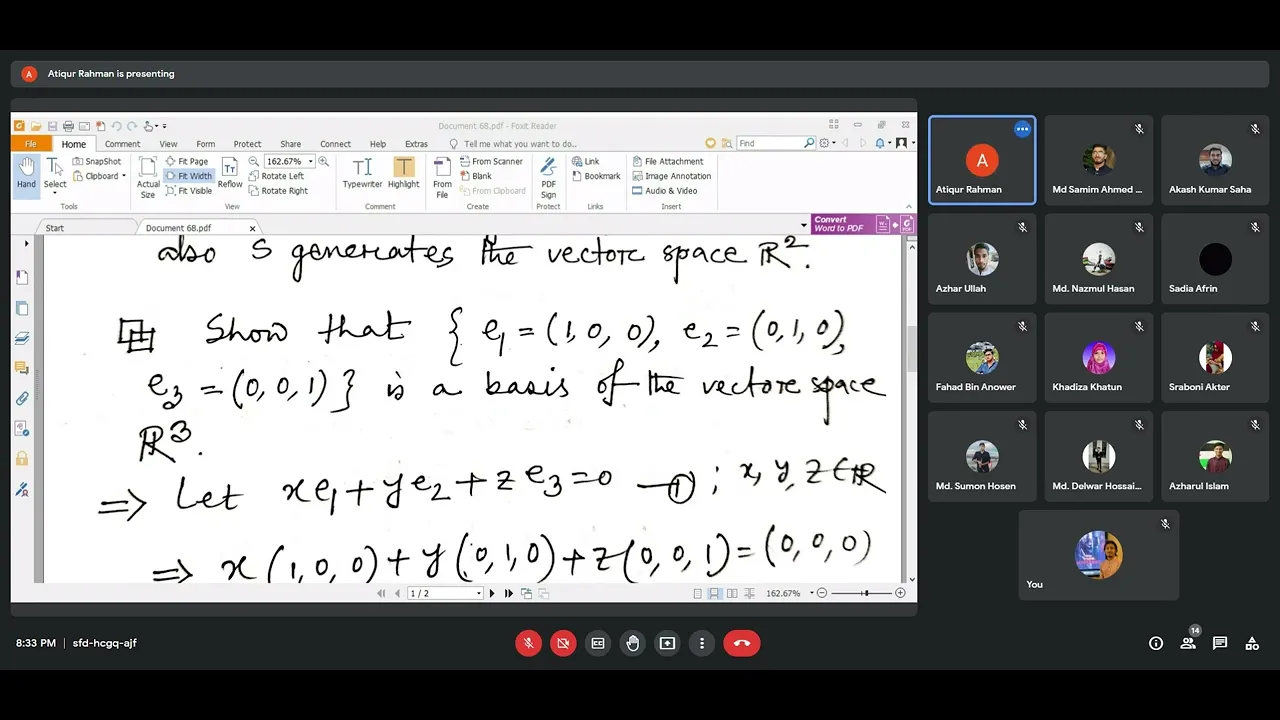 Atiqur Rahman is presenting
Document 68.pdf - Foxit Reader
File Home Comment View Form Protect Share Connect Help Extras Tell me what you want to do... Find
Hand
Select
SnapShot
Clipboard
Tools
Actual Size
Fit Page
Fit Width
Fit Visible
Reflow
162.67%
Rotate Left
Rotate Right
View
Typewriter
Highlight
Comment
From File
From Scanner
Blank
From Clipboard
Create
PDF Sign
Protect
Link
Bookmark
Links
File Attachment
Image Annotation
Audio & Video
Insert
Start
Document 68.pdf
Convert
Word to PDF
also S generates the vectore space ℝ².
Show that { e₁ = (1, 0, 0), e₂ = (0, 1, 0),
e₃ = (0, 0, 1) } is a basis of the vectore space
ℝ³.
⇒ Let xe₁ + ye₂ + ze₃ = 0 —① ; x, y, z ∈ ℝ
⇒ x(1, 0, 0) + y(0, 1, 0) + z(0, 0, 1) = (0, 0, 0)
1 / 2
162.67%
A
Atiqur Rahman
Md Samim Ahmed ...
Akash Kumar Saha
Azhar Ullah
Md. Nazmul Hasan
Sadia Afrin
Fahad Bin Anower
Khadiza Khatun
Sraboni Akter
Md. Sumon Hosen
Md. Delwar Hossai...
Azharul Islam
You
8:33 PM | sfd-hcgq-ajf
14